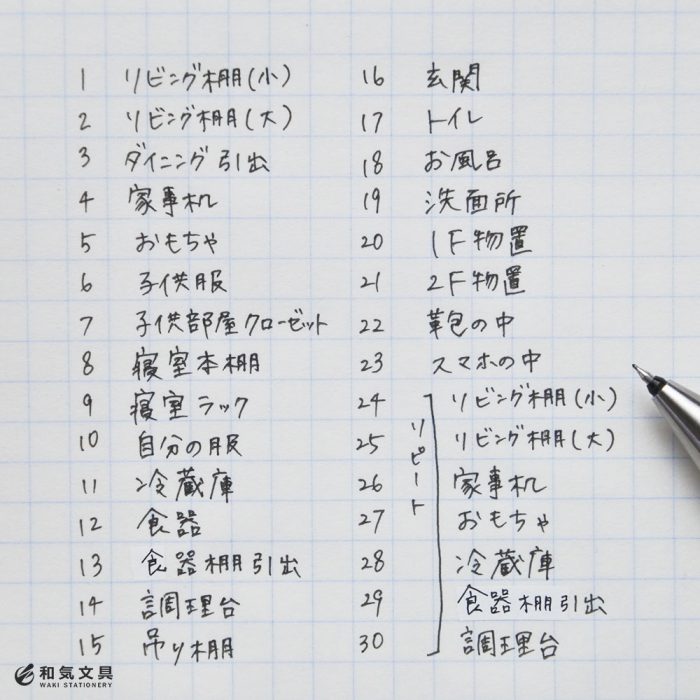 1 リビング棚(小)
2 リビング棚(大)
3 ダイニング引出
4 家事机
5 おもちゃ
6 子供服
7 子供部屋クローゼット
8 寝室本棚
9 寝室ラック
10 自分の服
11 冷蔵庫
12 食器
13 食器棚引出
14 調理台
15 吊り棚
16 玄関
17 トイレ
18 お風呂
19 洗面所
20 1F物置
21 2F物置
22 鞄の中
23 スマホの中
リピート
24 リビング棚(小)
25 リビング棚(大)
26 家事机
27 おもちゃ
28 冷蔵庫
29 食器棚引出
30 調理台
和気文具
WAKI STATIONERY